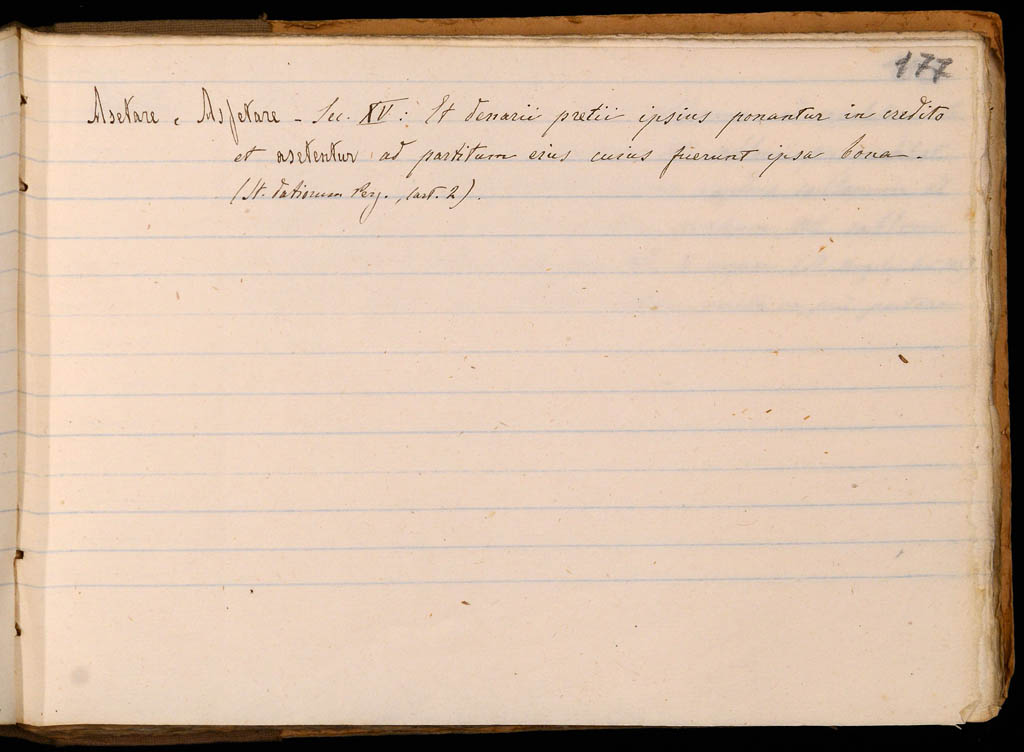 177
Asetare e Assetare - Sec. XV: Et denarii pretii ipsius ponantur in credito
et asetentur ad partitum eius cuius fuerunt ipsa bona.
(St. datiorum Berg., cart. 2).